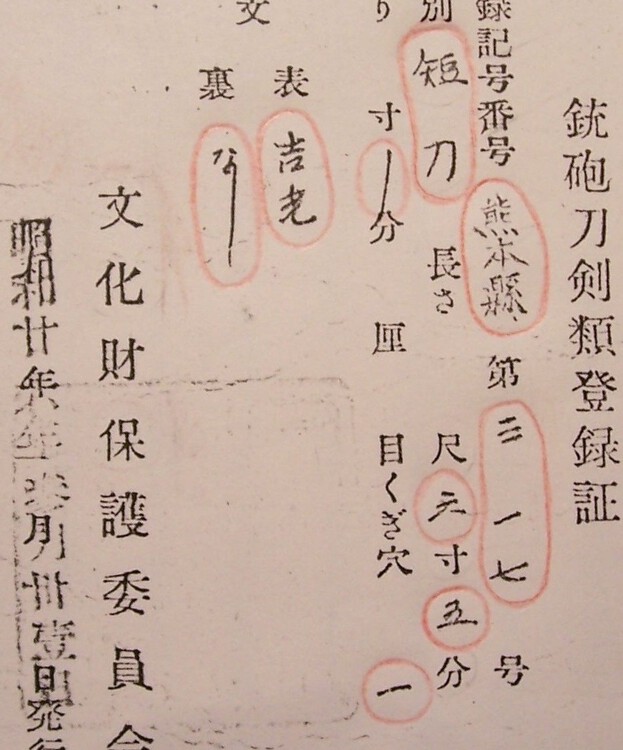 銃砲刀剣類登録証
録記号番号 熊本縣 第三一七号
別 短刀
長さ 尺六寸五分
り 寸 分 厘
目くぎ穴 一
文 表 吉光
裏 なし
文化財保護委員会
昭和廿六年 月卅壹日発行